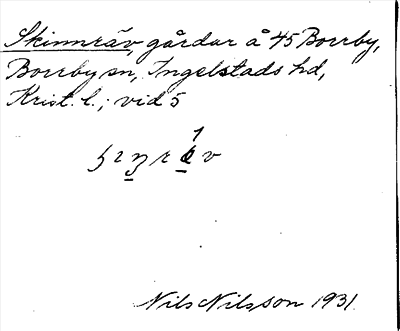 Skinnräv, gårdar å 45 Borrby,
Borrby sn, Ingelstads hd,
Krist. l.; vid 5
Nils Nilsson 1931.